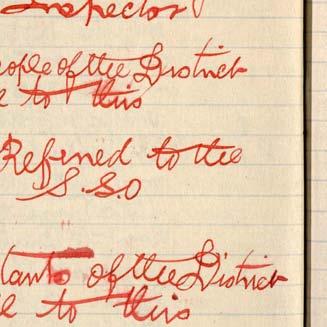 Inspector
eople of the District
e to this
Refered to the
S.S.O
tants of the District
e to this